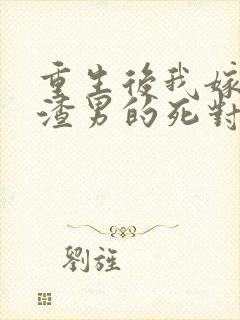 重生後我嫁
渣男的死對
劉旌